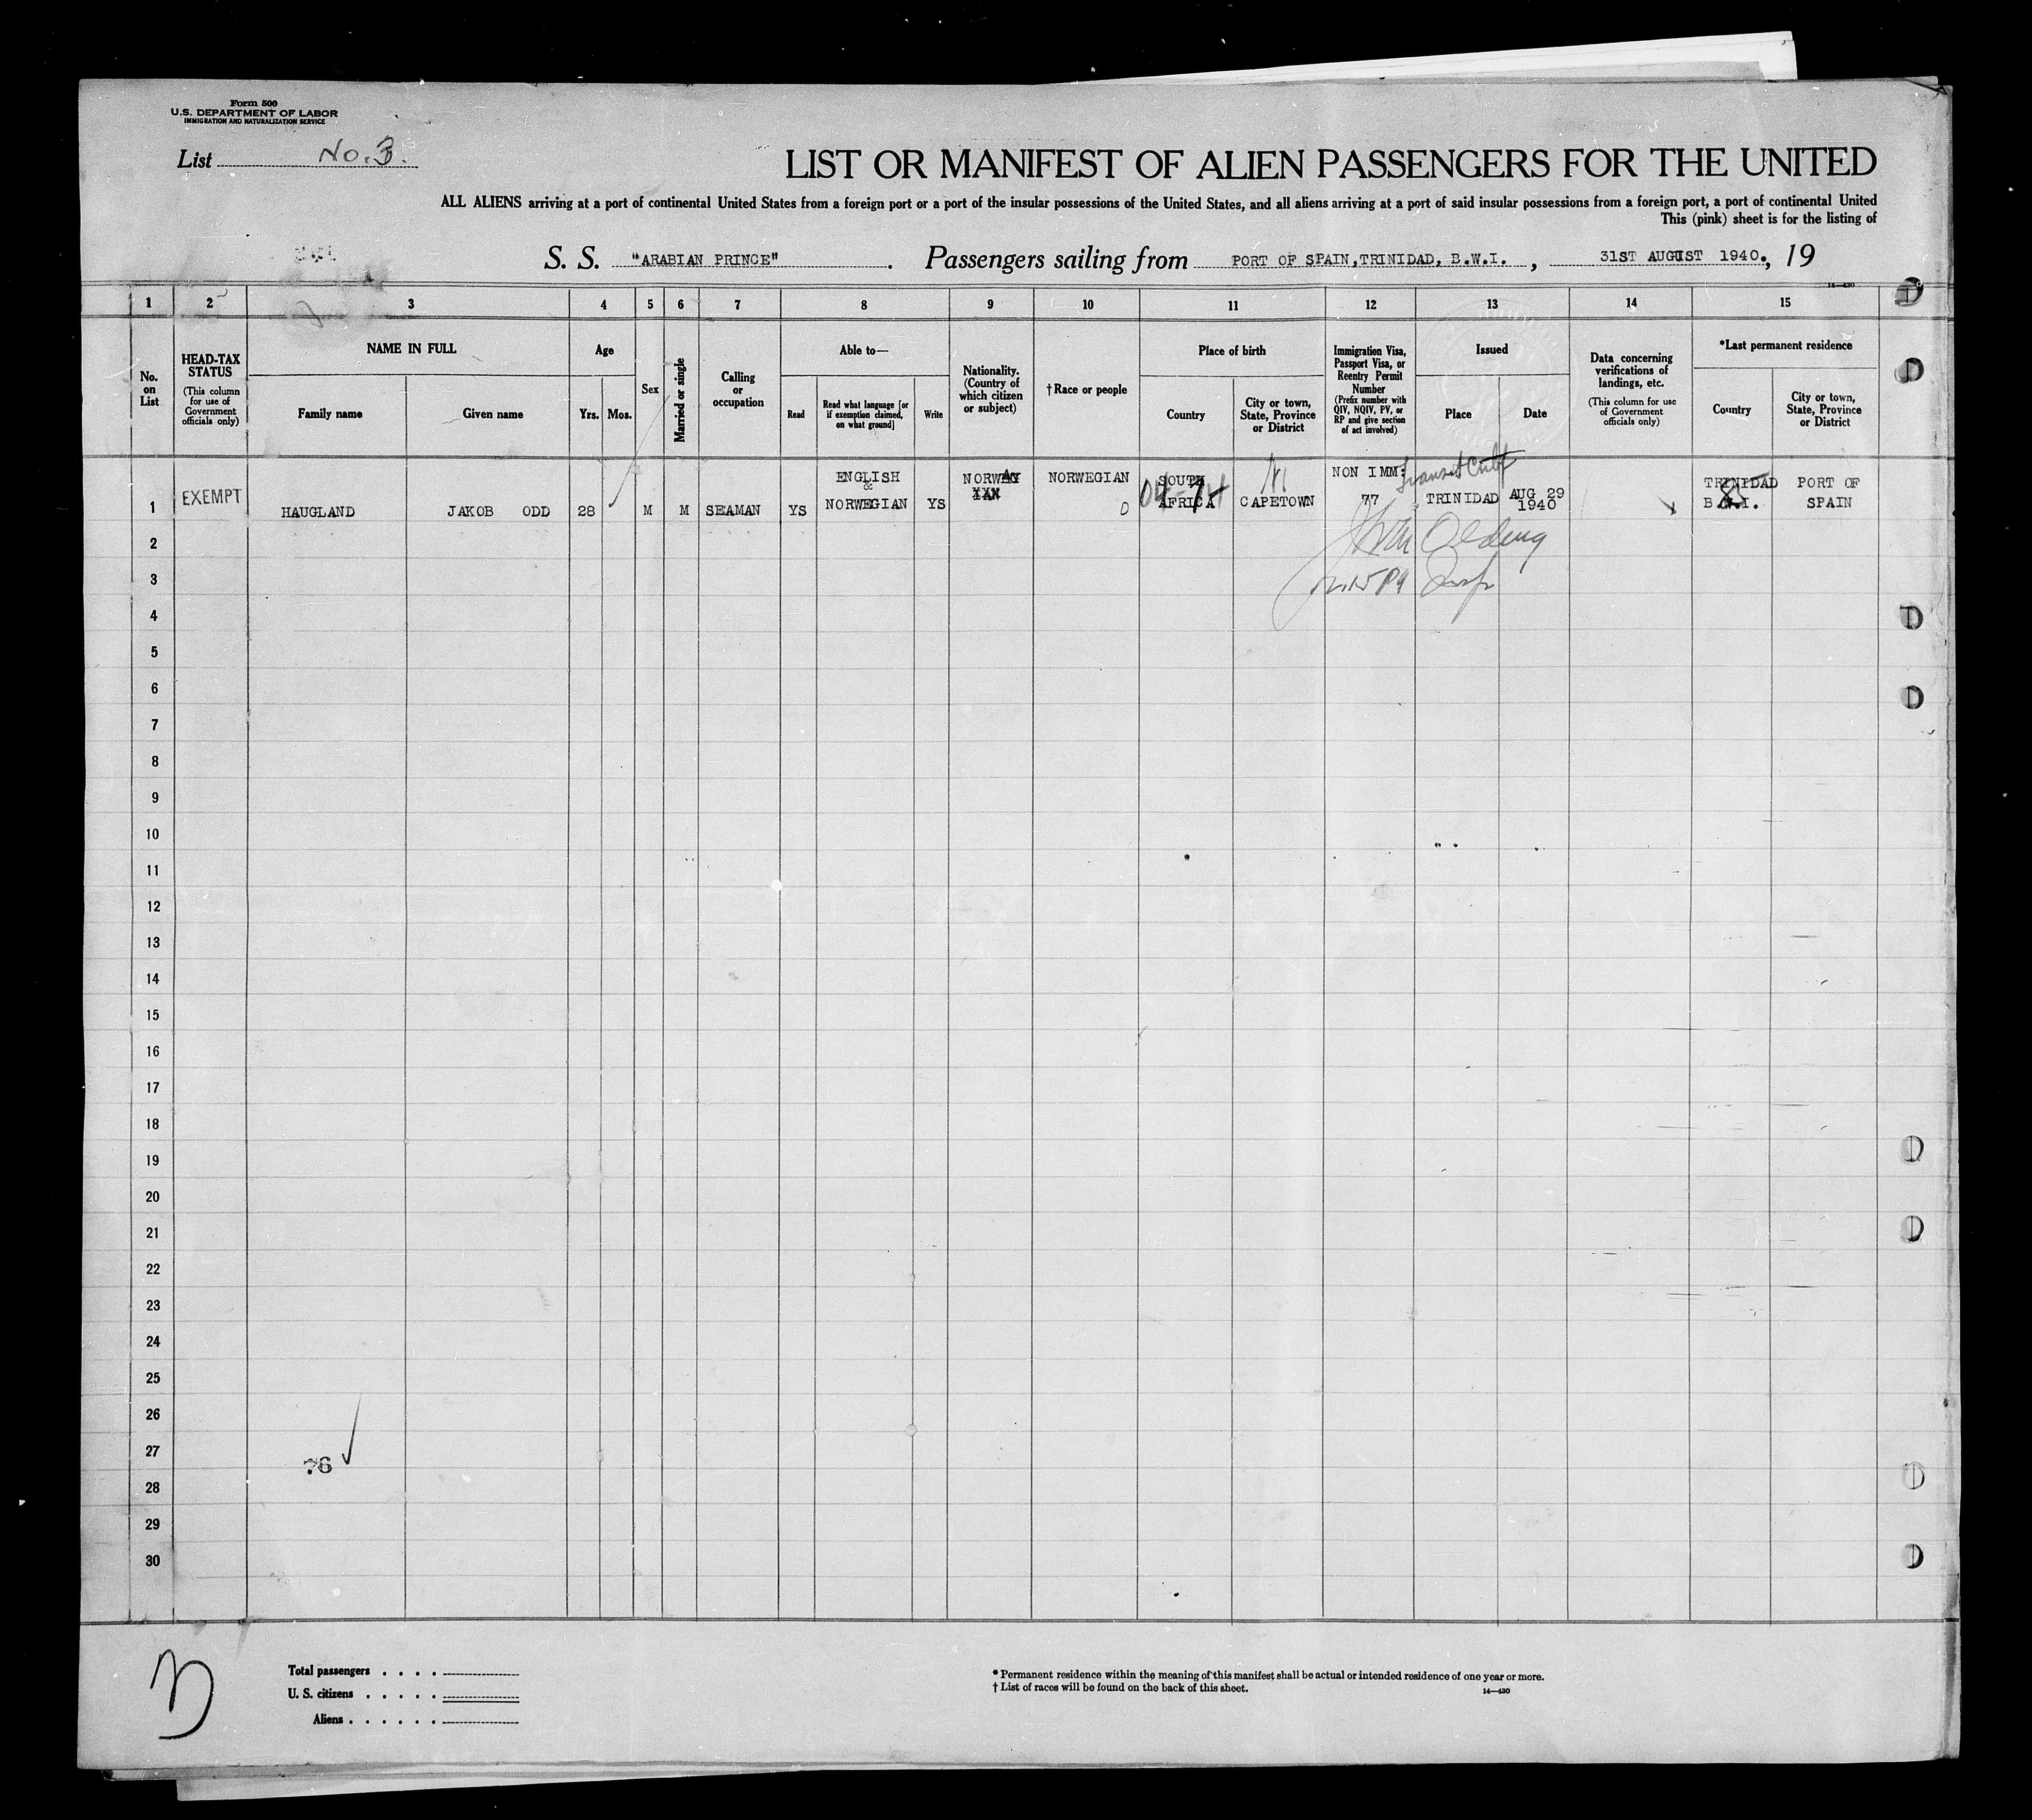 Form 500
U.S. DEPARTMENT OF LABOR
IMMIGRATION AND NATURALIZATION SERVICE
List No. 3.
LIST OR MANIFEST OF ALIEN PASSENGERS FOR THE UNITED
ALL ALIENS arriving at a port of continental United States from a foreign port or a port of the insular possessions of the United States, and all aliens arriving at a port of said insular possessions from a foreign port, a port of continental United
This (pink) sheet is for the listing of
S. S. "ARABIAN PRINCE". Passengers sailing from PORT OF SPAIN, TRINIDAD, B.W.I., 31ST AUGUST 1940., 19
14—430
1 2 3 4 5 6 7 8 9 10 11 12 13 14 15
No. on List
HEAD-TAX STATUS
(This column for use of Government officials only)
NAME IN FULL
Family name
Given name
Age
Yrs. Mos.
Sex
Married or single
Calling or occupation
Able to—
Read
Read what language [or if exemption claimed, on what ground]
Write
Nationality. (Country of which citizen or subject)
† Race or people
Place of birth
Country
City or town, State, Province or District
Immigration Visa, Passport Visa, or Reentry Permit Number
(Prefix number with QIV, NQIV, PV, or RP and give section of act involved)
Issued
Place
Date
Data concerning verifications of landings, etc.
(This column for use of Government officials only)
*Last permanent residence
Country
City or town, State, Province or District
ENGLISH NORWAY NORWEGIAN SOUTH NON IMM: TRINIDAD PORT OF
1 EXEMPT HAUGLAND JAKOB ODD 28 M M SEAMAN YS & NORWEGIAN YS AFRICA CAPETOWN 77 TRINIDAD AUG 29 1940 B.W.I. SPAIN
2
3
4
5
6
7
8
9
10
11
12
13
14
15
16
17
18
19
20
21
22
23
24
25
26
27
28
29
30
Total passengers . . . .
U. S. citizens . . . . .
Aliens . . . . . .
* Permanent residence within the meaning of this manifest shall be actual or intended residence of one year or more.
† List of races will be found on the back of this sheet.
14—430